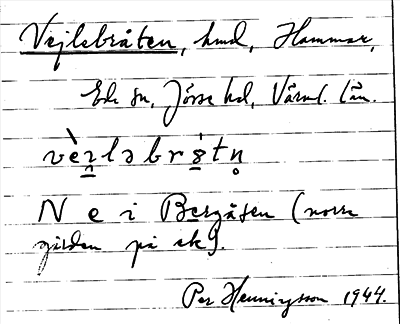 Vejlebråten, hmd, Hammar,
Eds sn, Jösse hd, Värml. län.
vèi̯ləbrs̱̀tn̥
N e i Bergåsen (norra
gården på ek).
Per Henningsson 1944.